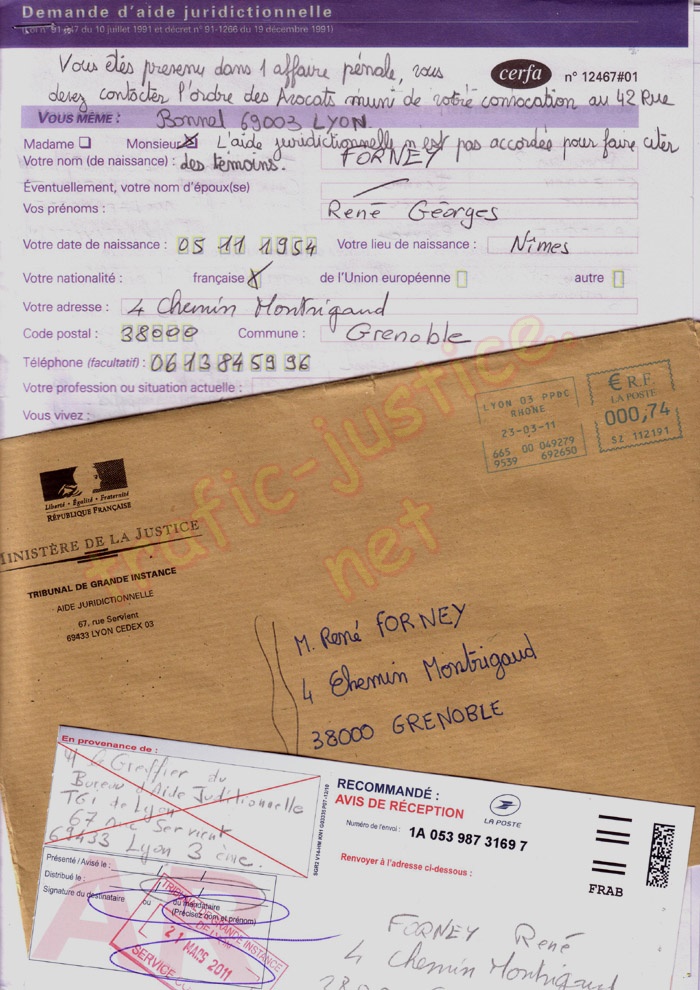 Demande d'aide juridictionnelle
(Loi n° 91-647 du 10 juillet 1991 et décret n° 91-1266 du 19 décembre 1991)
Vous êtes prevenu dans 1 affaire pénale, vous
cerfa n° 12467#01
devez contacter l'ordre des Avocats muni de votre convocation au 42 Rue
VOUS MÊME : Bonnel 69003 LYON.
Madame Monsieur L'aide juridictionnelle n'est pas accordée pour faire citer
des temoins.
Votre nom (de naissance) : FORNEY
Éventuellement, votre nom d'époux(se)
Vos prénoms : René Géorges
Votre date de naissance : 05 11 1954 Votre lieu de naissance : Nîmes
Votre nationalité : française X de l'Union européenne autre
Votre adresse : 4 Chemin Montrigaud
Code postal : 38000 Commune : Grenoble
Téléphone (facultatif) : 06 13 84 59 96
Votre profession ou situation actuelle :
Vous vivez :
trafic-justice.net
LYON 03 PPDC
RHONE
23-03-11
665 00 049279
9539 692650
€ R.F.
LA POSTE
000,74
SZ 112191
Liberté • Égalité • Fraternité
RÉPUBLIQUE FRANÇAISE
MINISTÈRE DE LA JUSTICE
TRIBUNAL DE GRANDE INSTANCE
AIDE JURIDICTIONNELLE
67, rue Servient
69433 LYON CEDEX 03
M. René FORNEY
4 Chemin Montrigaud
38000 GRENOBLE
En provenance de :
Greffier du
Bureau d'Aide Juditionnelle
TGi de Lyon
67 rue Servient
69433 Lyon 3 ème.
Présenté / Avisé le :
Distribué le :
Signature du destinataire ou du mandataire
(Précisez nom et prénom)
TRIBUNAL DE GRANDE INSTANCE
DE LYON
21 MARS 2011
RECOMMANDÉ :
AVIS DE RÉCEPTION
LA POSTE
Numéro de l'envoi : 1A 053 987 3169 7
Renvoyer à l'adresse ci-dessous :
FRAB
FORNEY René
4 Chemin Montrigaud